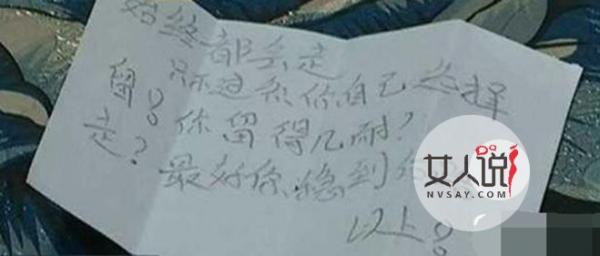 始终都会走
只不过系你自己选择
留?
走?
你留得几耐?
最好你稳到
以上?
女人说
NVSAY.COM